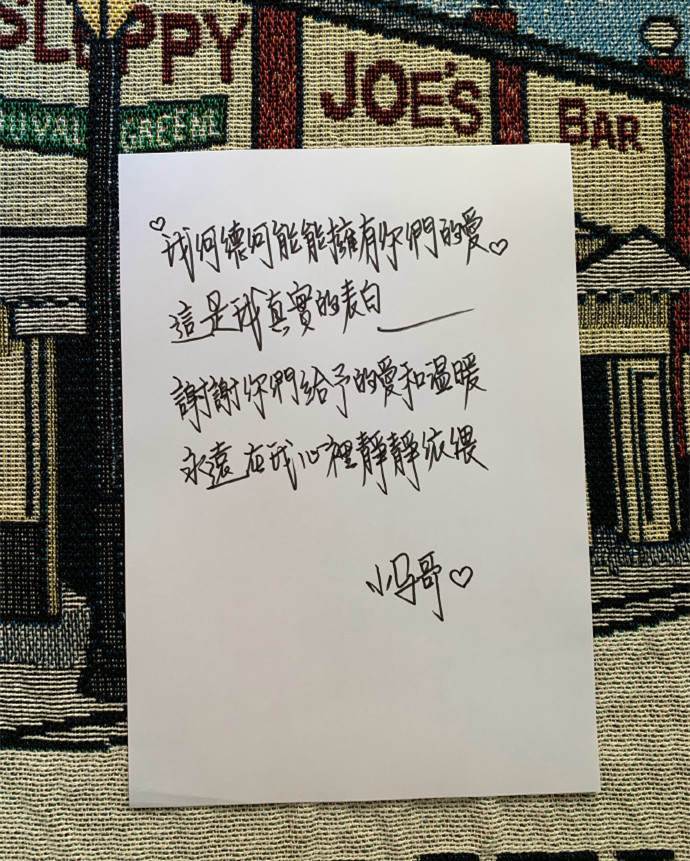 SLOPPY
JOE'S
BAR
DUVAL GREENE
♡我何德何能能擁有你們的愛♡
這是我真實的表白
謝謝你們給予的愛和溫暖
永遠在我心裡靜靜依偎
小马哥♡